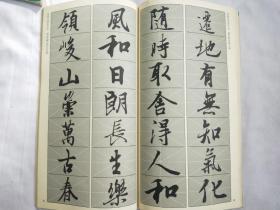 遷地有無知氣化
隨時取舍得人和
風和日朗長生樂
嶺峻山崇萬古春